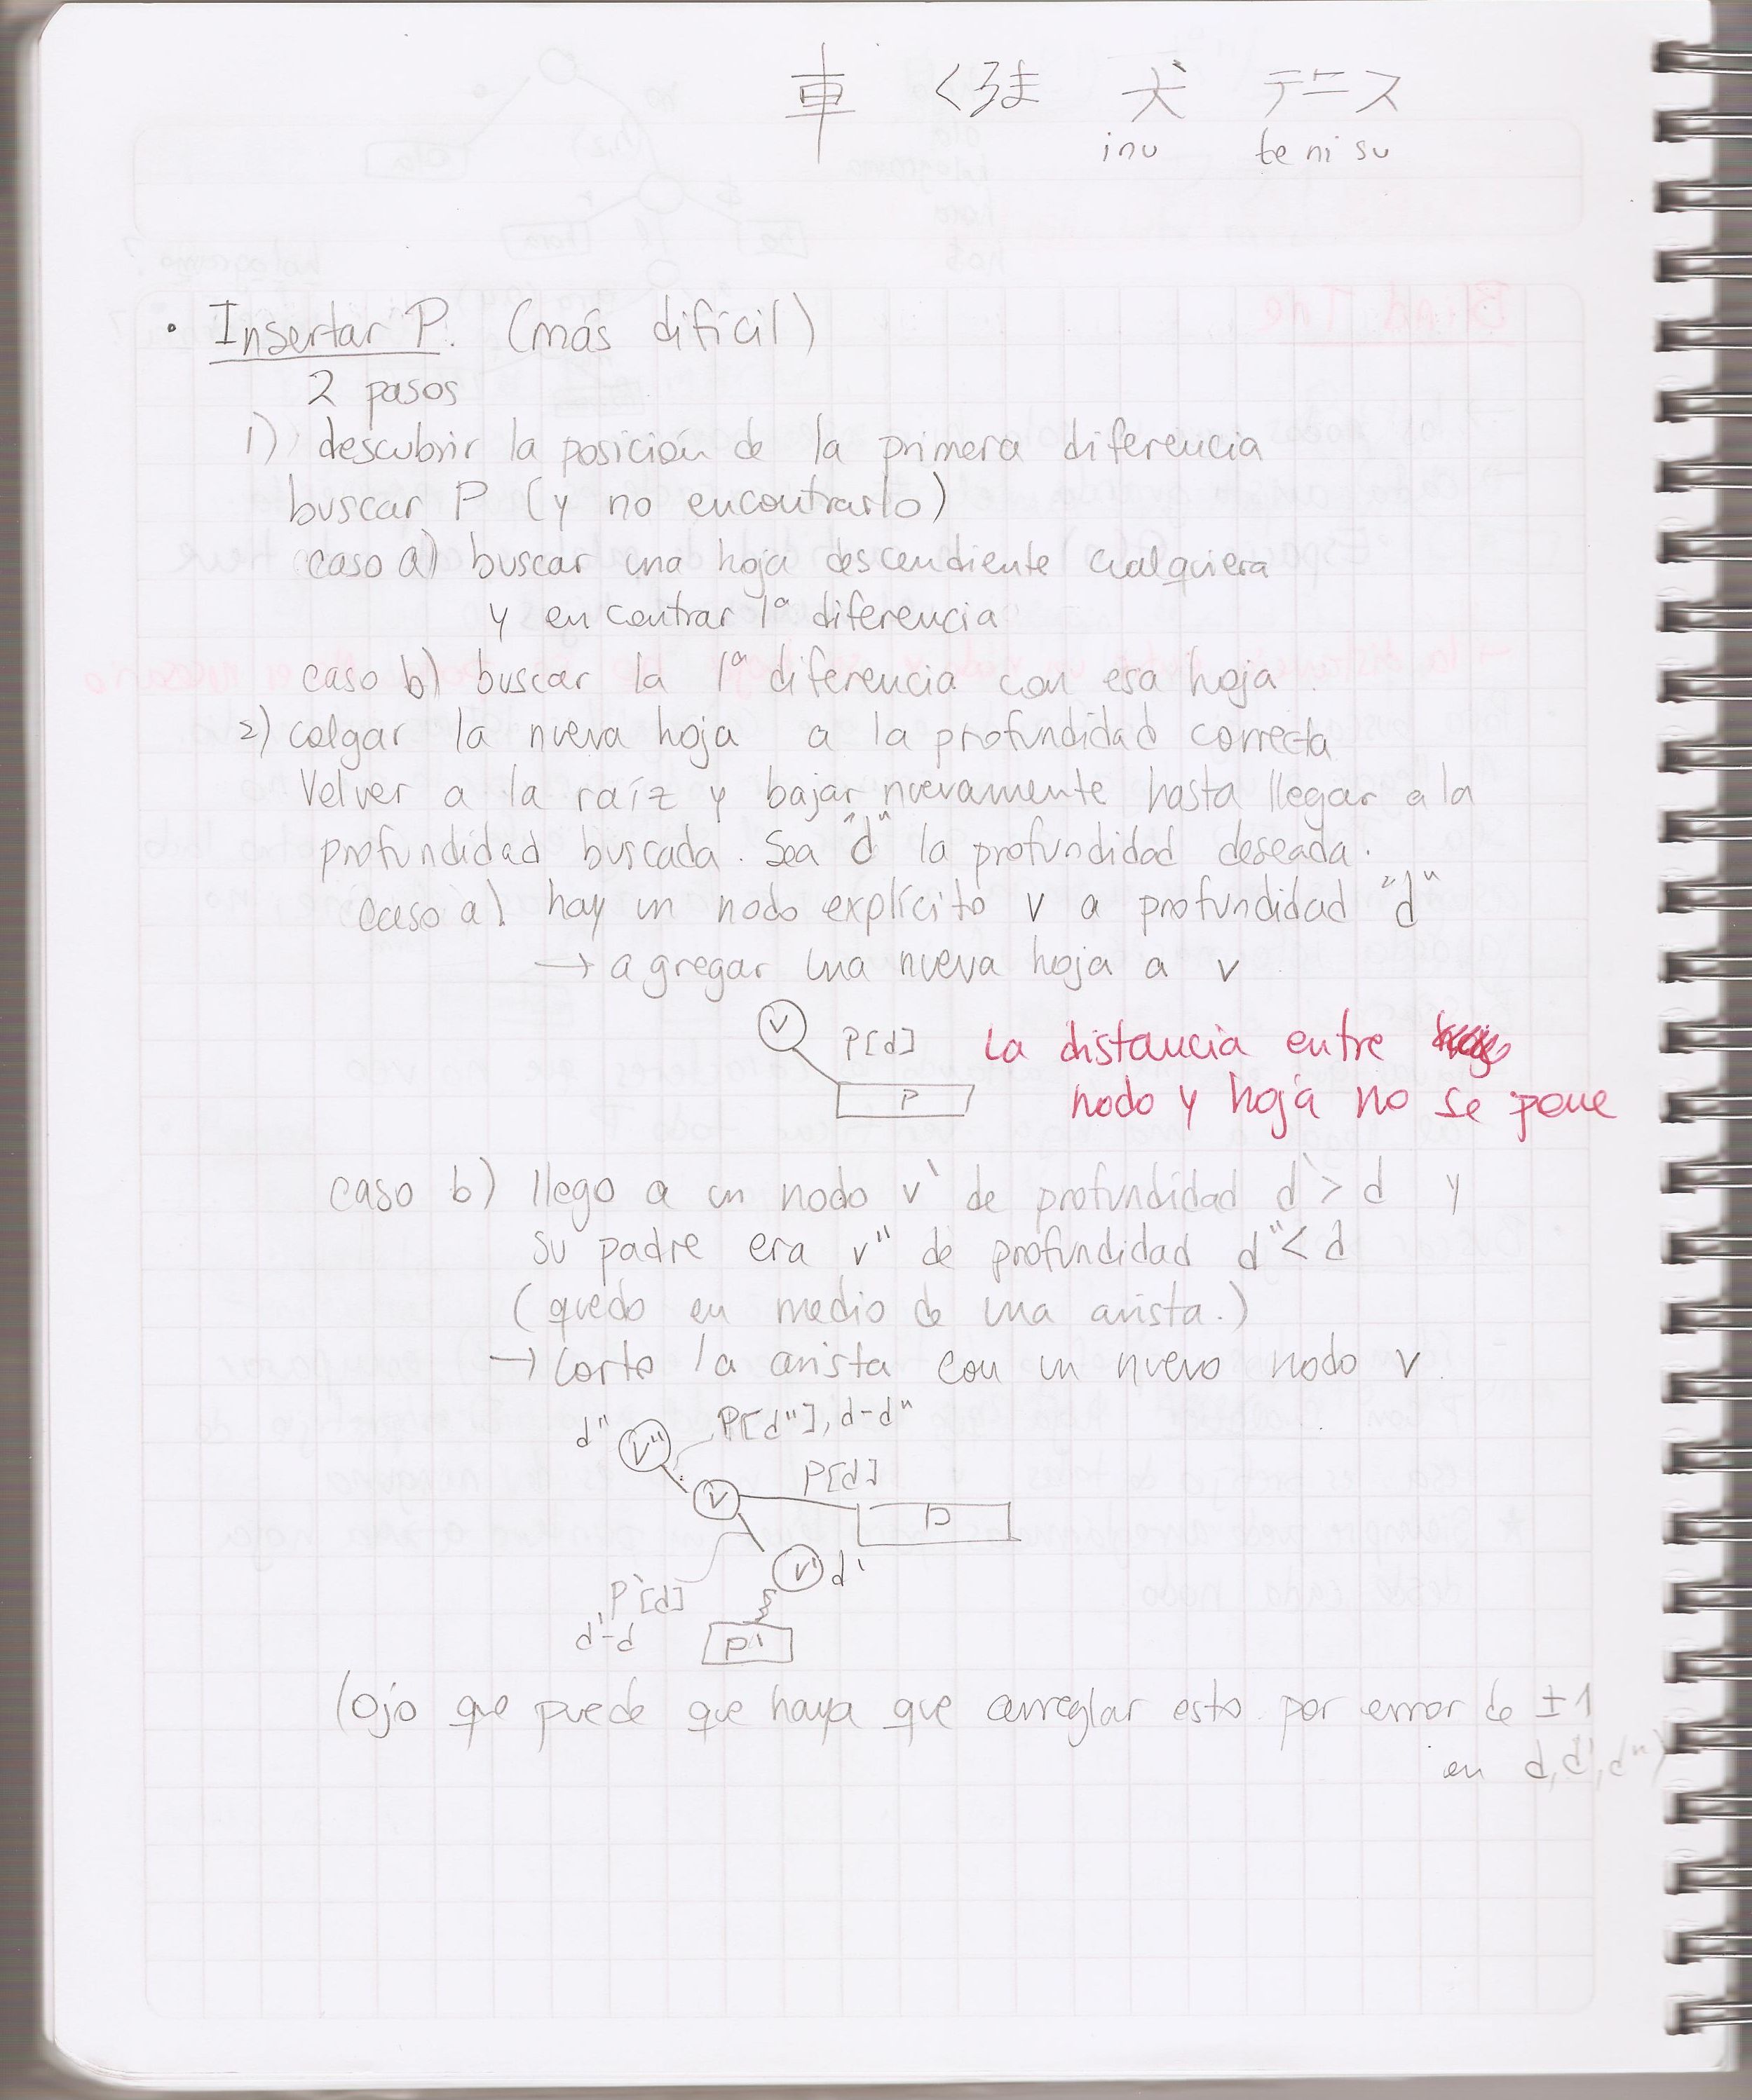 車 くるま 犬 テニス
inu tenisu
• Insertar P. (más difícil)
2 pasos
1) descubrir la posición de la primera diferencia
buscar P (y no encontrarlo)
caso a) buscar una hoja descendiente cualquiera
y encontrar 1ª diferencia
caso b) buscar la 1ª diferencia con esa hoja
2) colgar la nueva hoja a la profundidad correcta
Volver a la raíz y bajar nuevamente hasta llegar a la
profundidad buscada. Sea "d" la profundidad deseada.
caso a) hay un nodo explícito v a profundidad "d"
→ agregar una nueva hoja a v
v
P[d]
P
La distancia entre
nodo y hoja no se pone
caso b) llego a un nodo v' de profundidad d' > d y
su padre era v" de profundidad d" < d
(quedo en medio de una arista.)
→ Corto la arista con un nuevo nodo v.
d" v" P[d"], d-d"
v P[d] P
v' d'
P'[d]
d'-d
P'
(ojo que puede que haya que arreglar esto por error de ±1
en d, d', d")